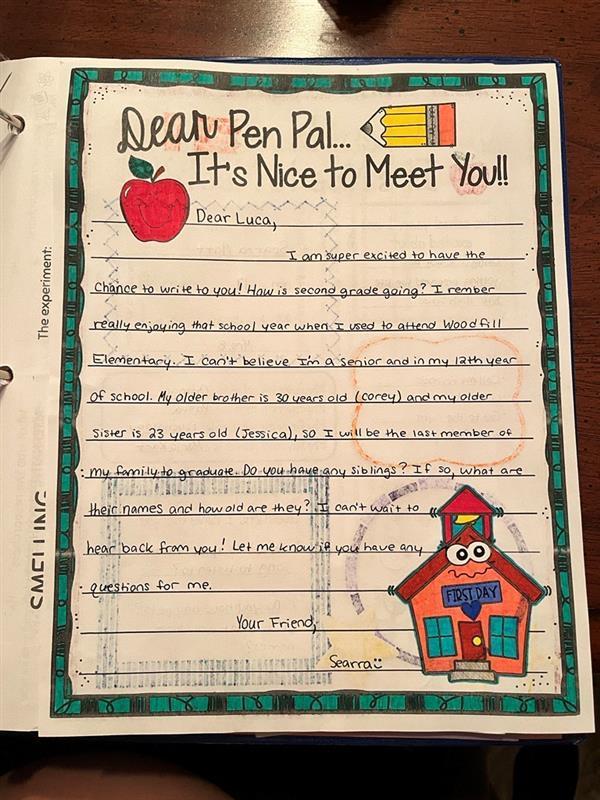 Dear Pen Pal...
It's Nice to Meet You!!
Dear Luca,
I am super excited to have the
chance to write to you! How is second grade going? I rember
really enjoying that school year when I used to attend Woodfill
Elementary. I can't believe I'm a senior and in my 12th year
of school. My older brother is 30 years old (Corey) and my older
sister is 23 years old (Jessica), so I will be the last member of
my family to graduate. Do you have any siblings? If so, what are
their names and how old are they? I can't wait to
hear back from you! Let me know if you have any
questions for me.
FIRST DAY
Your Friend,
Searra
The experiment:
SMELLING